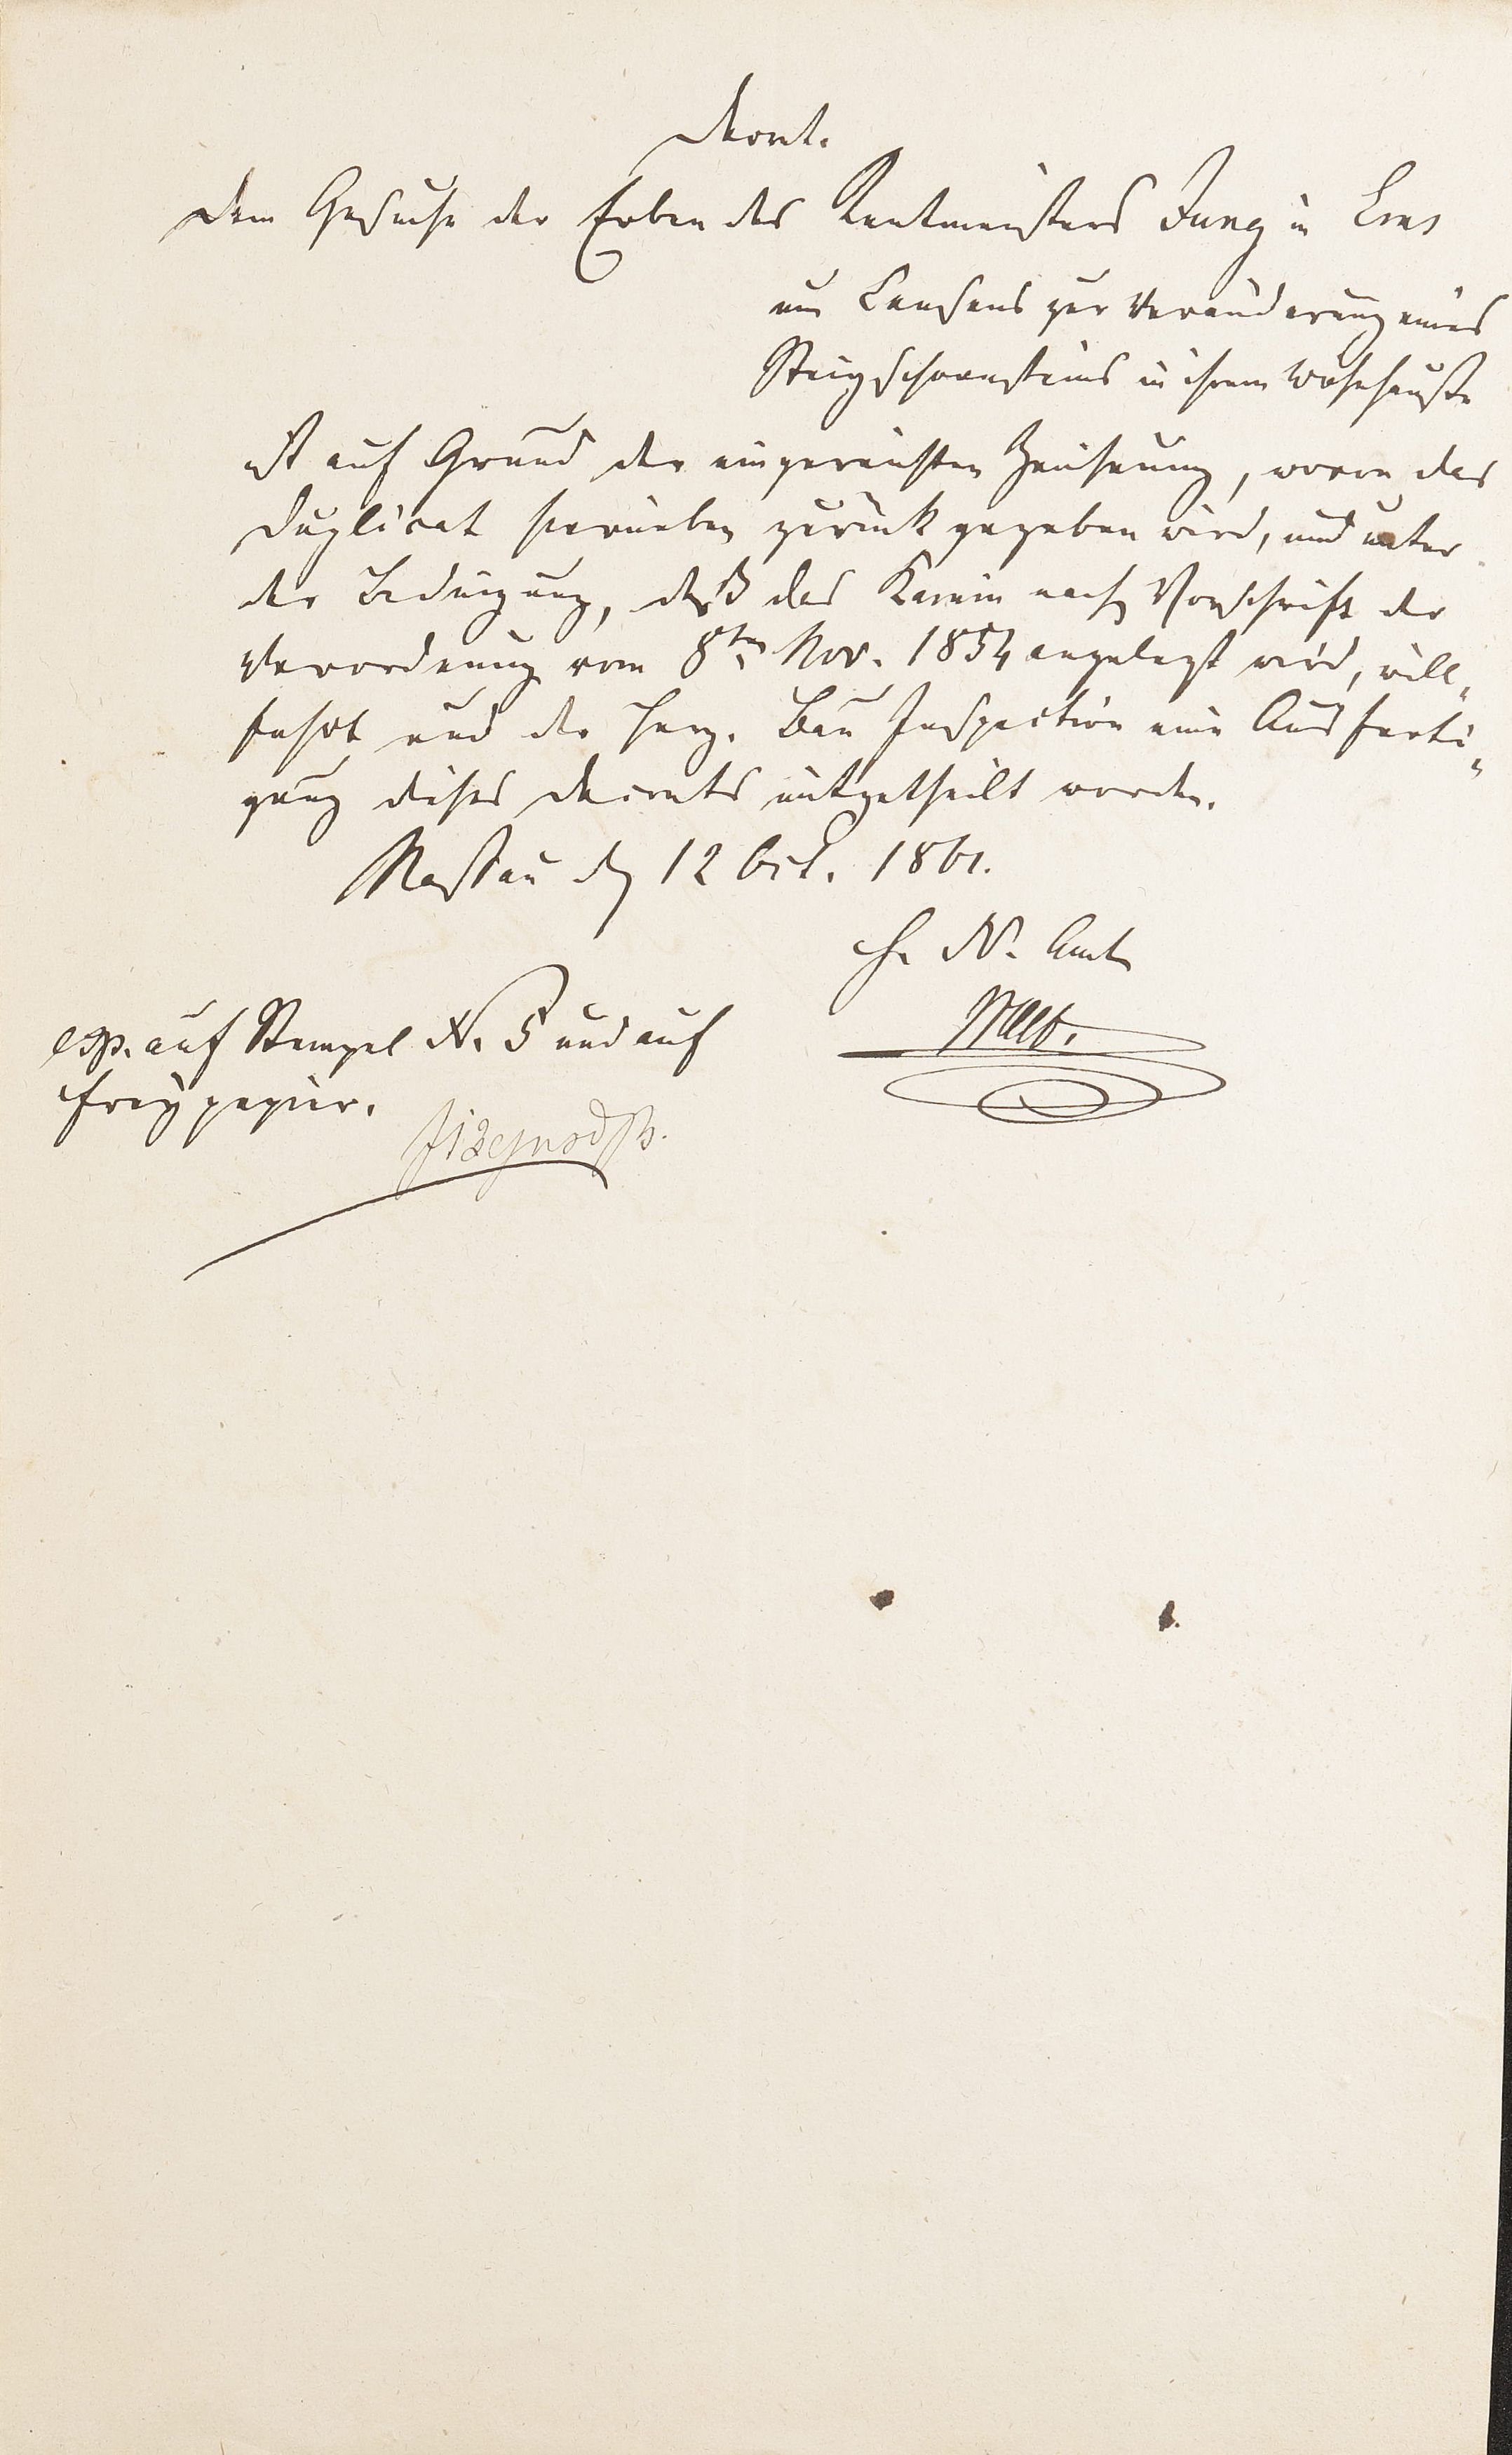 Decret.
Dem Gesuche der Erben des Rentmeisters Jung in Ems
um Consens zur Veränderung eines
Steigschornsteins in ihrem Wohnhauße
ist auf Grund der eingereichten Zeichnung, wovon das
Duplicat hierneben zurück gegeben wird, und unter
der Bedingung, daß das Kamin nach Vorschrift der
Verordnung vom 8ten Nov. 1854 angelegt wird, will„
fahrt und der Herz. Bau Inspection eine Ausferti„
gung dieses Decrets mitgetheilt worden.
Nassau den 12 Oct. 1861.
H. N. Amt
exp. auf Stempel N. 5 und auf
Freypapier.